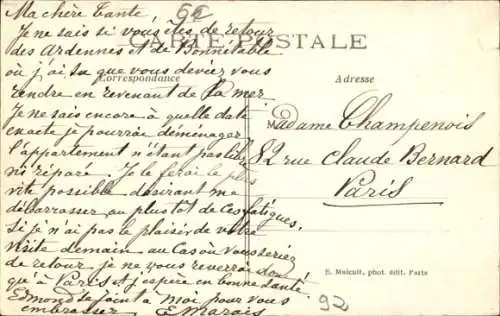 62
Ma chère Tante,
Je ne sais si vous êtes de retour
des Ardennes et de Bonnetable
CARTE POSTALE
où j'ai su que vous deviez vous
Correspondance
Adresse
rendre en revenant de la mer.
Je ne sais encore à quelle date
exacte je pourrai déménager
l'appartement n'étant pas libre
ni réparé. Je le ferai le plus
vite possible désirant me
débarrasser au plus tôt de ces fatigues.
Si je n'ai pas le plaisir de votre
visite demain au cas où vous seriez
de retour je ne vous reverrai donc
qu'à Paris et j'espère en bonne santé.
Edmond se joint à moi pour vous
embrasser E Marais
Madame Champenois
82 rue Claude Bernard
Paris
E. Malcuit, phot. édit. Paris
92